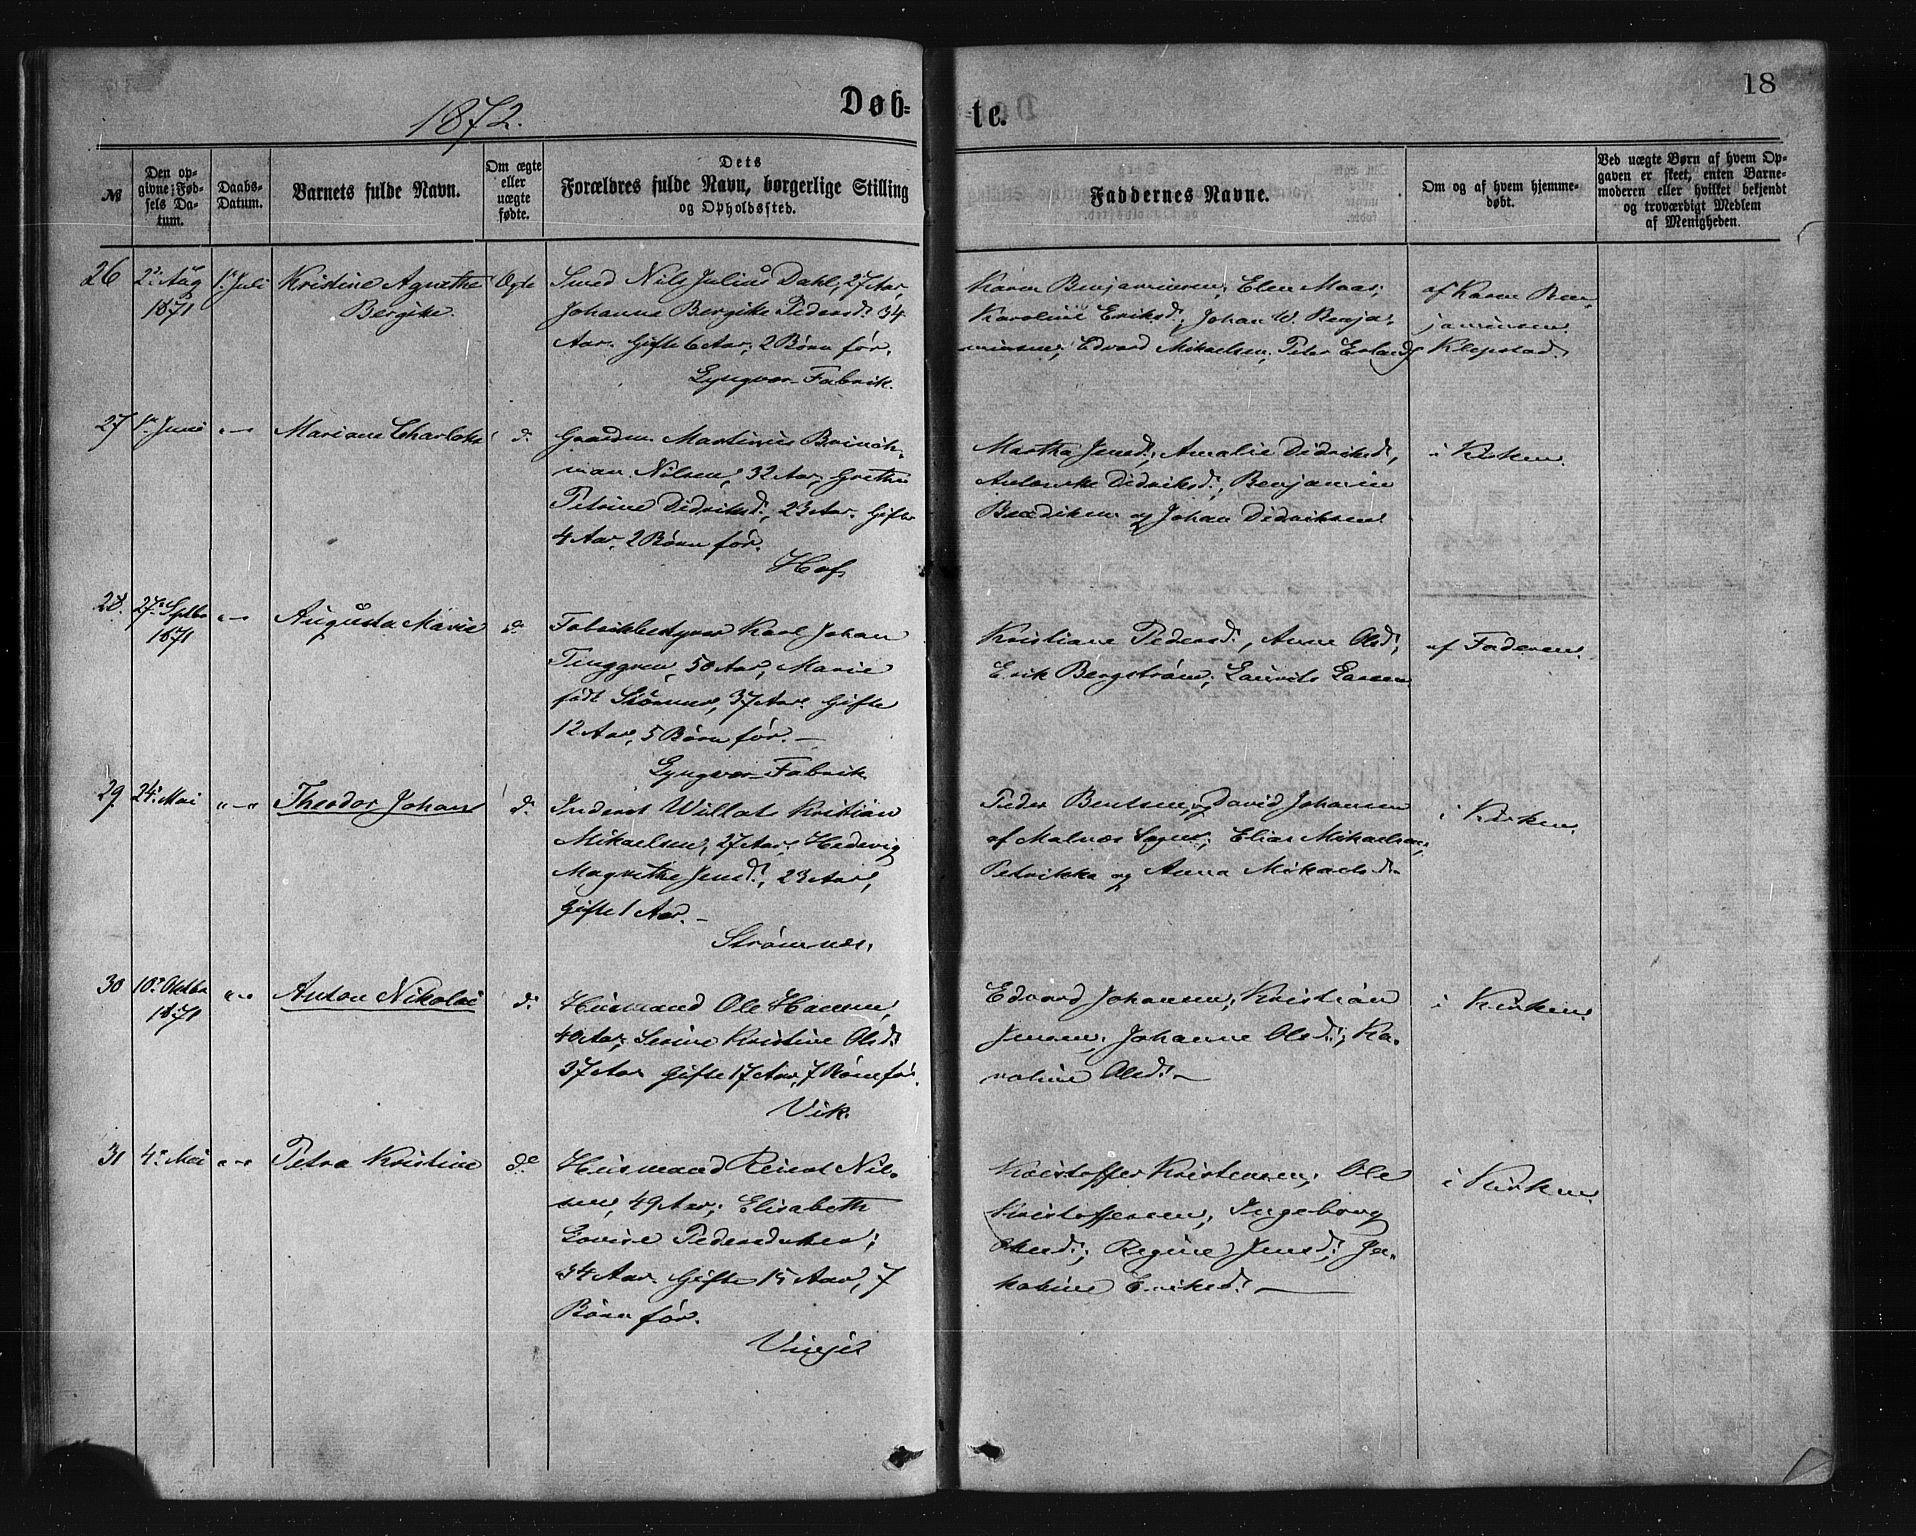 18
1872.
Døb-
te.
№
Den op-
givne Fød-
sels Da-
tum.
Daabs-
Datum.
Barnets fulde Navn.
Om ægte
eller
uægte
fødte.
Dets
Forældres fulde Navn, borgerlige Stilling
og Opholdssted.
Faddernes Navne.
Om og af hvem hjemme-
døbt.
Ved uægte Børn af hvem Op-
gaven er skeet, enten Barne-
moderen eller hvilket bekjendt
og troværdigt Medlem
af Menigheden.
26
2. Aug
1871
1. Juli
Kristine Agnethe
Bergitte
Ægte
Smed Nils Julius Dahl, 27 Aar,
Johanne Bergitte Pedersd. 34
Aar. Gifte 6 Aar, 2 Børn før.
Lyngvær Fabrik.
Karen Benjaminsen, Elen Maas,
Karoline Eriksd., Johan W. Benja-
minsen, Edvard Mikaelsen, Peter
af Karen Ben-
jaminsen
Klepstad
27
1. Juni
"
Mariane Charlotte
d.
Gaardm. Martinus Brinch-
man Nilsen, 32 Aar, Grethe
Petrine Didriksd., 23 Aar. Gifte
4 Aar, 2 Børn før.
Hof
Martha Jensd., Amalie Didriksd.,
Didriksd., Benjamin
og Johan Didriksen.
i Kirken.
28.
27. Septbr
1871
"
Augusta Marie
d.
Fabrikbestyrer Karl Johan
Tinggren, 50 Aar, Marie
født Stømer, 37 Aar. Gifte
12 Aar, 5 Børn før. —
Lyngvær Fabrik
Kristiane Pedersd., Anne Olsd.,
Erik Bergstrøm, Laurits Larsen.
af Faderen.
29
24. Mai
"
Theodor Johan
d.
Inderst Kristian
Mikaelsen, 27 Aar, Hedevig
Magrethe Jensd., 23 Aar,
Gifte 1 Aar. —
Strømnes.
Peder Bentsen, David Johansen
af Malnæs Sogn, Elias Mikaelsen,
Petrikke og Anna Mikaelsd.
i Kirken.
30
10. Oktbr
1871
"
Anton Nikolai
d.
Husmand Ole Hansen,
40 Aar, Serine Kristine Olsd.
37 Aar Gifte 17 Aar, 7 Børn før.
Vik.
Edvard Johansen, Kristian
Jensen, Johanne Olsd., Ka-
roline Olsd. —
i Kirken.
31
4. Mai
"
Petra Kristine
d.
Husmand Reinert Nil-
sen, 49 Aar, Elisabeth
Lovise Pedersdatter,
34 Aar Gifte 15 Aar, 7
Børn før.
Vinje
Kristoffer Kristensen, Ole
Kristoffersen, Ingeborg
Olsd., Regine Jensd., Ja-
kobine Eriksd. —
i Kirken.